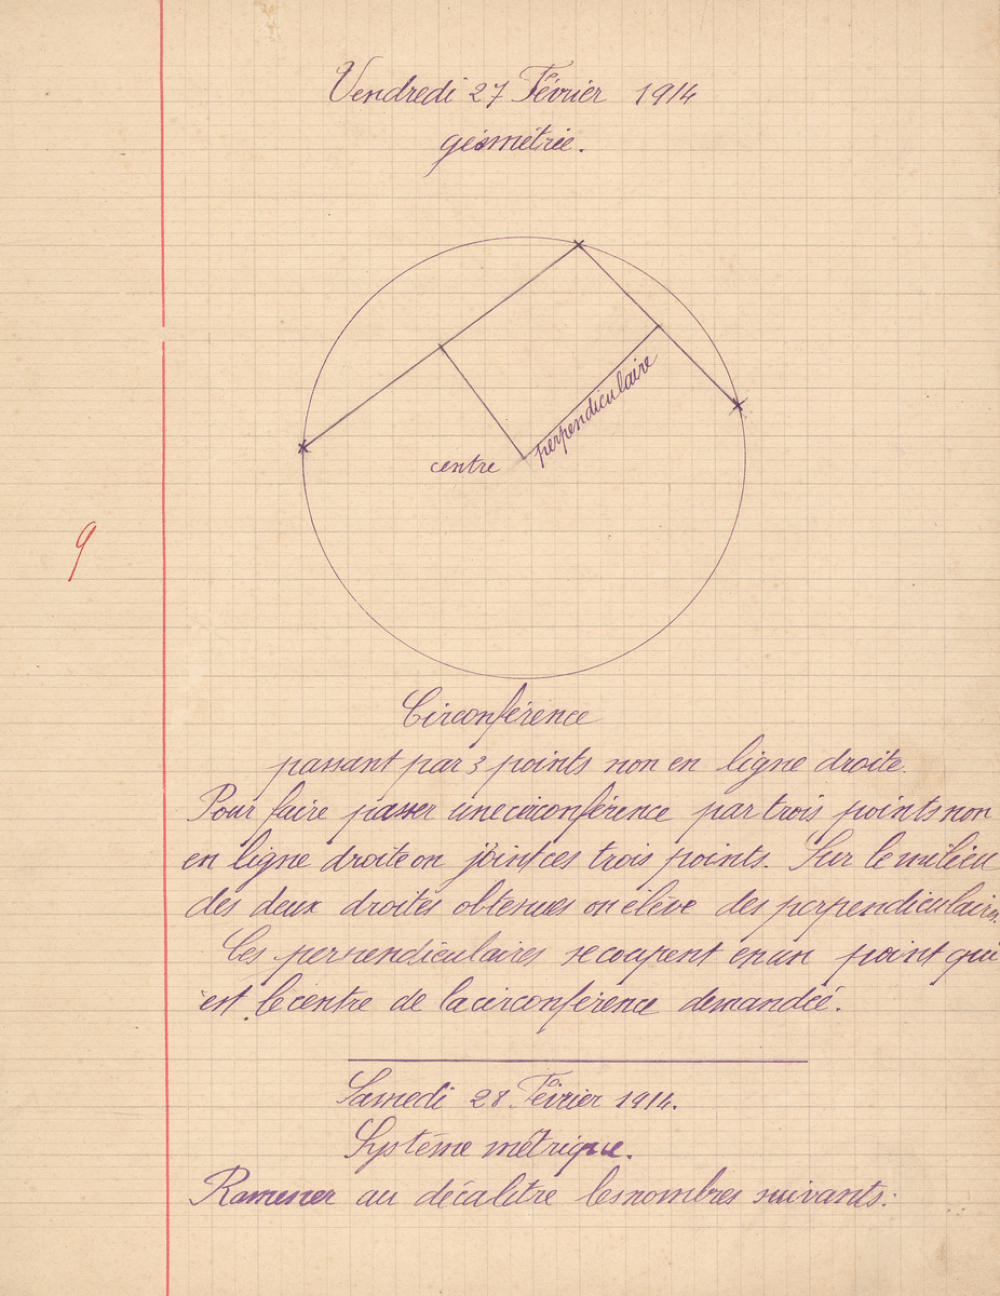 Vendredi 27 Février 1914
géométrie.
perpendiculaire
centre
9
Circonférence
passant par 3 points non en ligne droite.
Pour faire passer une circonférence par trois points non
en ligne droite on joint ces trois points. Sur le milieu
des deux droites obtenues on élève des perpendiculaires.
Ces perpendiculaires se coupent en un point qui
est le centre de la circonférence demandée.
Samedi 28 Février 1914.
Système métrique.
Ramener au décalitre les nombres suivants: